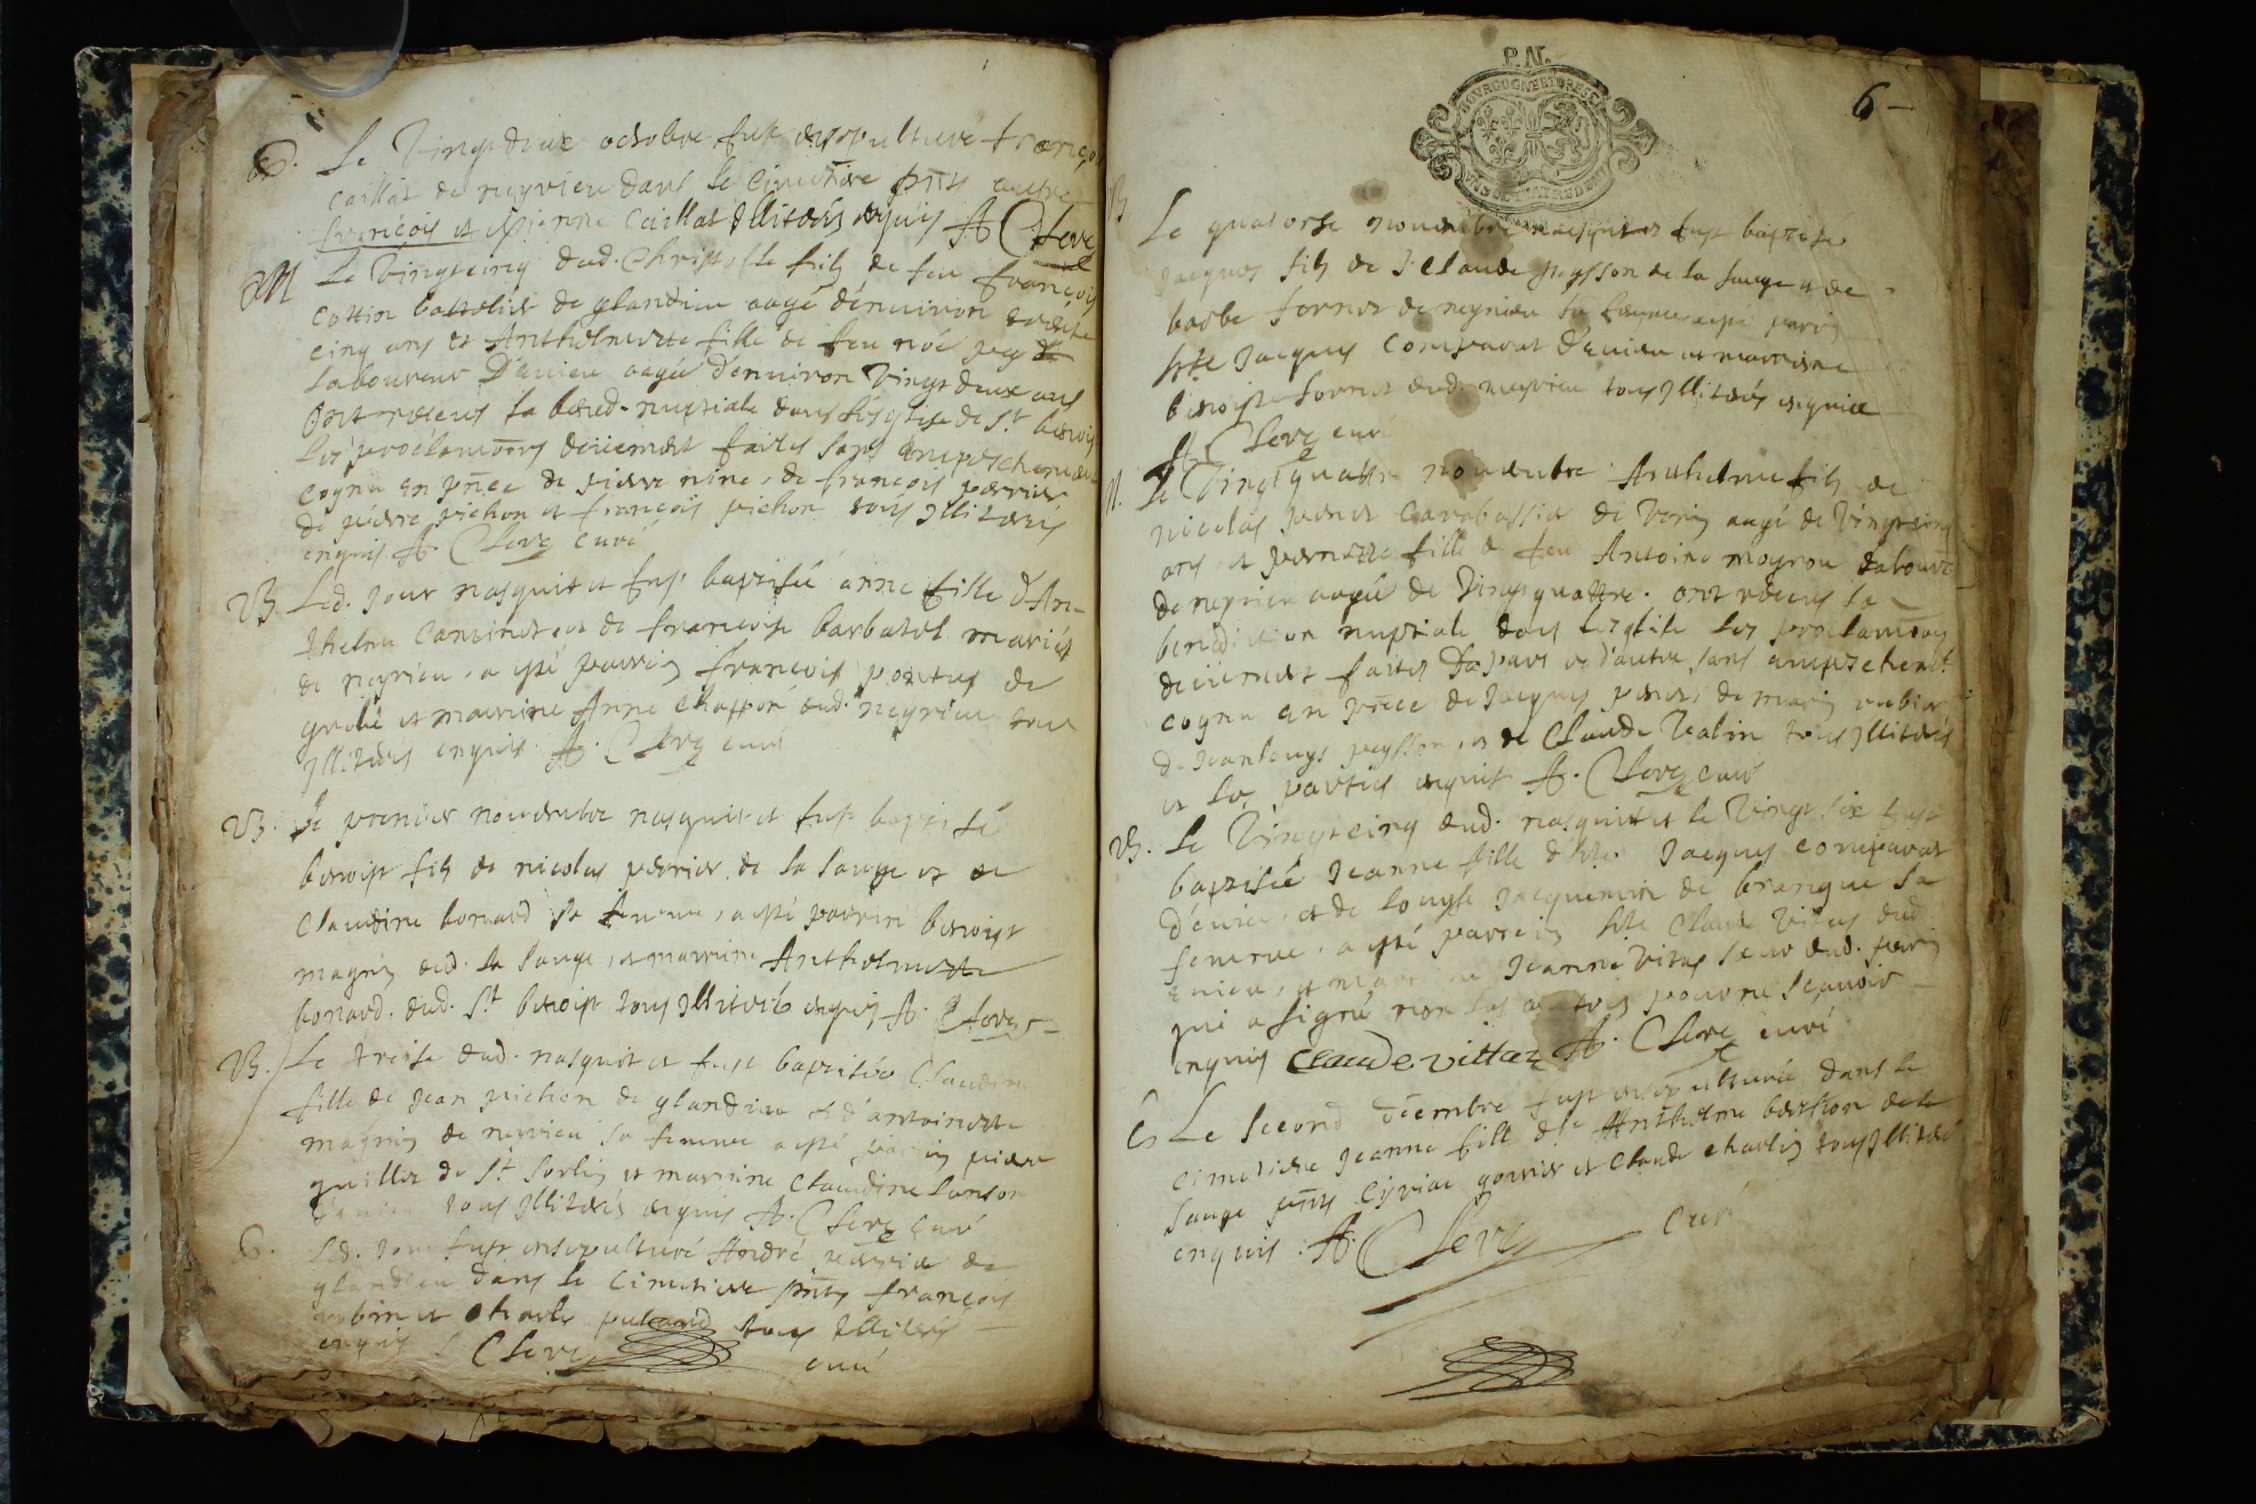 S. Le Vingt deux octobre fust ensepulturé françois
caillat de neyrieu dans le cimetière pñts autre
françois et estienne Caillat Illiterés enquis A Clerc
M Le Vingtcinq dud. Christofle fils de feu françois
cottin battelier de glandieu aagé d'enuiron trente
cinq ans et Anthelmette fille de feu noé pey
laboureur D'éuieu aagée d'enuiron Vingt deux ans
Ont receus la bened. nuptiale dans l'esglise de St benoist
les proclamaons deüement faites sans empeschement
cognu en pñce de pierre nine, de françois perrier
de pierre pichon et françois pichon tous Illiterés
enquis. A. Clerc curé
B. Led. jour nasquit et fust baptisée anne fille d'An-
thelme Cantinet et de françoise barbatel mariés
de neyrieu, a esté parrin françois pontus de
grolée et marrine Anne Chappon dud. neyrieu tous
Illiterés enquis. A. Clerc curé
B. Le premier nouembre nasquit et fust baptisé
benoist fils de nicolas perrier de la sauge et de
Claudine bonard sa femme, a esté parrin benoist
magnin dud. la sauge, et marrine Anthelmette
bonard. dud. St benoist tous Illiterés enquis A. Clerc
B. Le treise dud. nasquit et fust baptisée Claudine
fille de jean pichon de glandieu et d'antoinette
magnin de neyrieu sa femme a esté parrin pierre
guillet de St Sorlin et marrine Claudine lanson
tous Illiterés enquis A. Clerc curé
S. Led. jour fust ensepulturé André perrier de
glandieu dans le cimetiere pñts françois
robin et charle putaud tous Illiterés
enquis A. Clerc curé
P. N.
BOVRGOGNE ET BRESSE
6
B Le quatorse nouembre nasquit et fust baptisé
Jacques fils de Sr Claude peysson de la sauge et de
barbe fornet de neyrieu sa femme a esté parrin
hte Jacques Comparat d'éuieu et marrine
benoiste fornet dud. neyrieu tous Illiterés enquis
A. Clerc curé
M. Le Vingtquattre nouembre Anthelme fils de
nicolas penet Carabassier de Verin aagé de Vingtcinq
ans et pernette fille de feu Antoine moyrou laboure
de neyrieu aagée de Vingtquattre. ont receus la
benediction nuptiale dans lesglise les proclamaons
deüement faites de part et d'autre sans empeschemt.
cognu en pñce de Jacques penet, de marin rubier
de Jeanlouys peysson, et de Claude Valin tous Illiterés
et les parties enquis A. Clerc curé
B. Le Vingtcinq dud. nasquit et le Vingt six fust
baptisée Jeanne fille d'hte. Jacques comparat
d'éuieu, et de louyse Jacquemin de brangue sa
femme. a esté parrein hte Claude Vittus dud.
Euieu, et marrine Jeanne Vitus seur dud. parrin
qui a signé non les autres pour ne sçauoir
enquis Claude vittaz A. Clerc curé
S Le second décembre fust ensepulturée dans le
cimetiere Jeanne fille de Anthelme berthon de la
sauge pñts Ciprian gourrier et Claude charlin tous Illiterés
enquis. A. Clerc curé